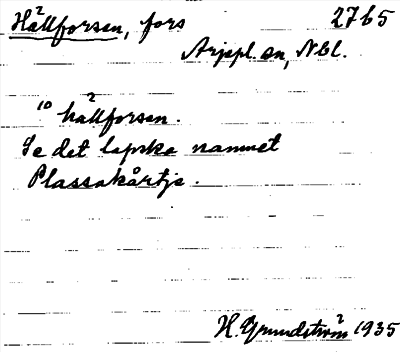 Hällforsen, fors 2765
Arjepl. sn, Nbl.
1) hällforsen.
Se det lapska namnet
Plassakårtje.
H. Grundström 1935